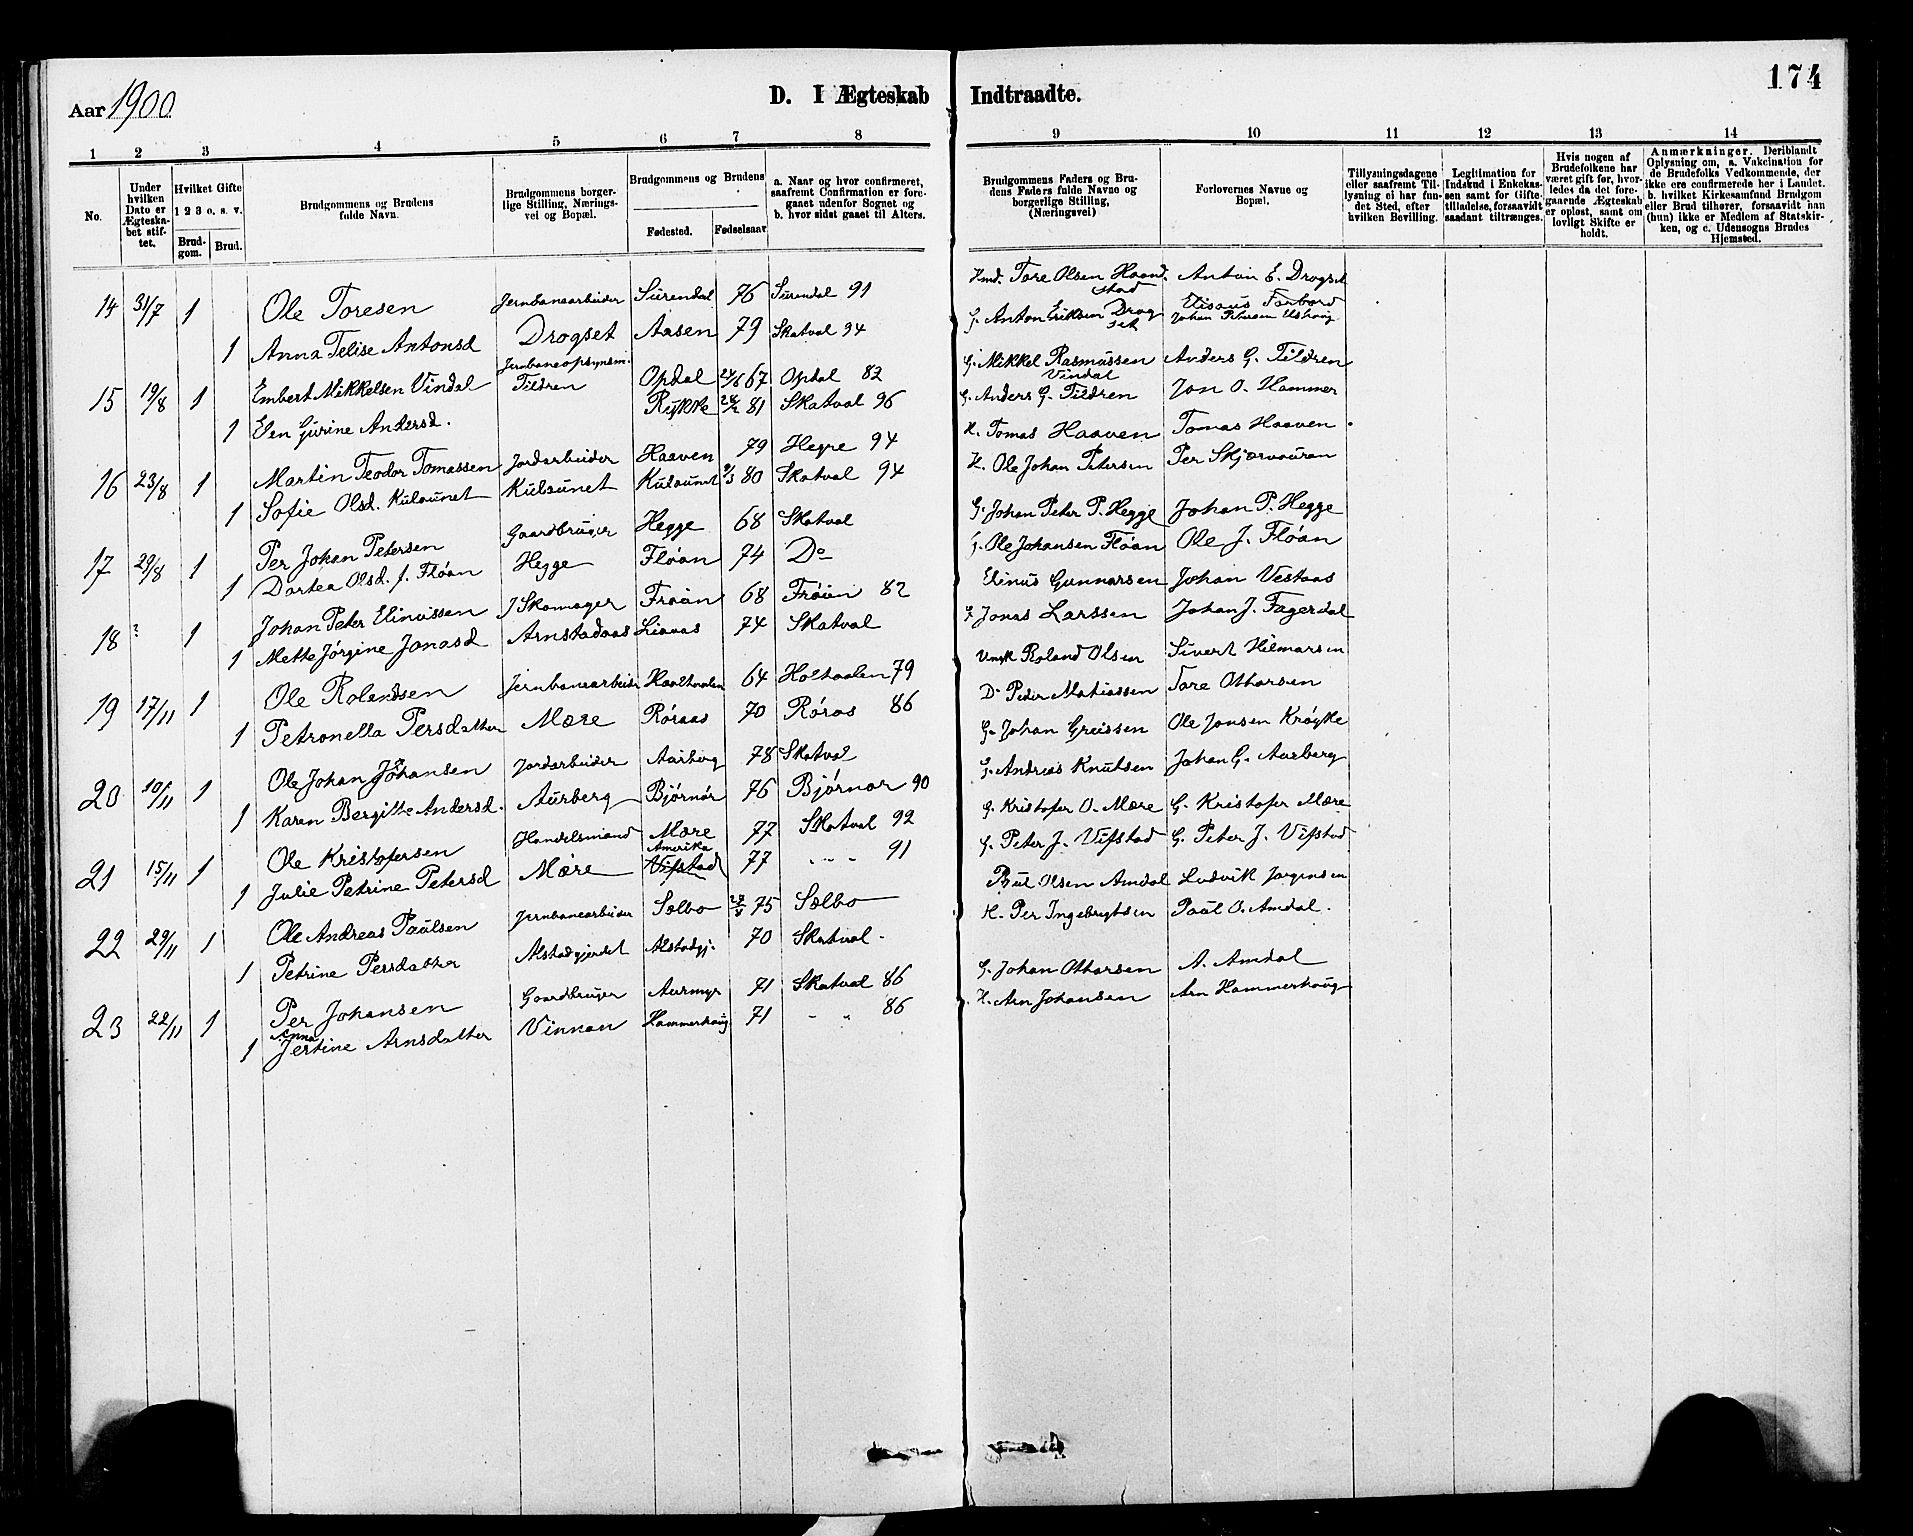 Aar 1900
D. I Ægteskab Indtraadte.
174
1 2 3 4 5 6 7 8 9 10 11 12 13 14
No.
Under hvilken Dato er Ægteskabet stiftet.
Hvilket Gifte 1 2 3 o. s. v.
Brudgom. Brud.
Brudgommens og Brudens fulde Navn.
Brudgommens borgerlige Stilling, Næringsvei og Bopæl.
Brudgommens og Brudens
Fødested. Fødselsaar
a. Naar og hvor confirmeret, saafremt Confirmation er foregaaet udenfor Sognet og b. hvor sidst gaaet til Alters.
Brudgommens Faders og Brudens Faders fulde Navne og borgerlige Stilling, (Næringsvei)
Forlovernes Navne og Bopæl.
Tillysningsdagene eller saafremt Tillysning ei har fundet Sted, efter hvilken Bevilling.
Legitimation for Indskud i Enkekassen samt for Giftetilladelse, forsaavidt saadant tiltrænges.
Hvis nogen af Brudefolkene har været gift før, hvorledes da det foregaaende Ægteskab er opløst, samt om lovligt Skifte er holdt.
Anmærkninger. Deriblandt Oplysning om, a. Vakcination for de Brudefolks Vedkommende, der ikke ere confirmerede her i Landet. b. hvilket Kirkesamfund Brudgom eller Brud tilhører, forsaavidt han (hun) ikke er Medlem af Statskirken, og c. Udensogns Brudes Hjemsted.
14 31/7 1 Ole Toresen Jernbanearbeider Surendal 76 Surendal 91 Tore Olsen Anton E. Drogset
1 Anna Telise Antonsd Drogset Aasen 79 Skatval 94 G. Anton Eriksen Drogset Johan Petersen
15 19/8 1 Embert Mikkelsen Vindal Jernbaneopsynsm. Tildren Opdal 67 Opdal 82 G. Mikkel Rasmussen Vindal Anders G. Tildren
1 Elen Gurine Andersd. Rykke 81 Skatval 96 G. Anders G. Tildren Jon O. Hammer
16 23/8 1 Martin Teodor Tomassen Jordarbeider Haaven 79 Hegre 94 H. Tomas Haaven Tomas Haaven
1 Sofie Olsd. Kulsunet Kulsunet Kulsunet 9/3 80 Skatval 94 H. Ole Johan Petersen Per
17 29/8 1 Per Johan Petersen Gaardbruger Hegge 68 Skatval G. Johan Peter P. Hegge Johan P. Hegge
1 Dortea Olsd. f. Fløan Hegge Fløan 74 Do G. Ole Johansen Fløan Ole J. Fløan
18 ? 1 Johan Peter Elinussen Skomager Frøien 68 Frøien 82 Elinus Gunnarsen Johan Vestaas
1 Mette Jørgine Jonasd Arnstadaas Liavas 74 Skatval Jonas Larssen Johan J. Fagerdal
19 17/11 1 Ole Rolandsen Jernbanearbeider Haaltvaalen 64 Holtvaalen 79 Roland Olsen Sivert Hilmarsen
1 Petronella Persdatter Mære Røraas 70 Røros 86 Do Peder Matiassen Tore Ottarsen
20 10/11 1 Ole Johan Johansen Jordarbeider Aarberg 78 Skatval G. Johan Greissen Ole Jonsen Krøgke
1 Karen Bergitte Andersd. Aurberg Bjørnør 76 Bjørnor 90 G. Andreas Knutsen Johan G. Aurberg
21 15/11 1 Ole Kristofersen Handelsmand Mære 77 Skatval 92 G. Kristofer O. Mære G. Kristofer Mære
1 Julie Petrine Petersd Mære Amerika Vifstad 77 " " " 91 G. Peter J. Vifstad G. Peter J. Vifstad
22 29/11 1 Ole Andreas Paulsen Jernbanearbeider Selbo 75 Selbo Olsen Amdal Ludvik Jørgensen
1 Petrine Persdatter Alstadgjerdet Alstadgj. 70 Skatval. H. Per Ingebrigtsen Paul O. Amdal.
23 22/11 1 Per Johansen Gaardbruger Aurmyr 71 Skatval 86 G. Johan Ottarsen A. Amdal
1 Anna Jertine Arnsdatter Vinnan Hammerhaug 71 " " 86 H. Arn Johansen Arn Hammerhaug